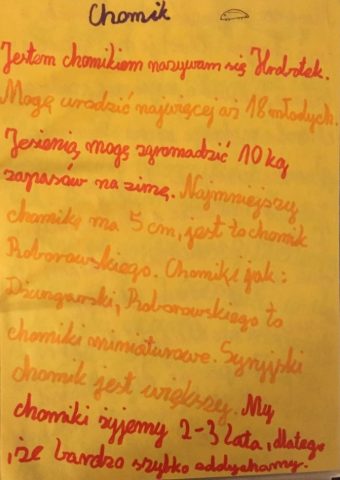 Chomik
Jestem chomikiem nazywam się Hrobotek.
Mogę urodzić najwięcej aż 18 młodych.
Jesienią, mogę zgromadzić 10 kg
zapasów na zimę. Najmniejszy
chomik ma 5 cm, jest to chomik
Roborowskiego. Chomiki jak:
Dżungarski, Roborowskiego to
chomiki miniaturowe. Syryjski
chomik jest większy. My
chomiki żyjemy 2-3 lata, dlatego
, że bardzo szybko oddychamy.